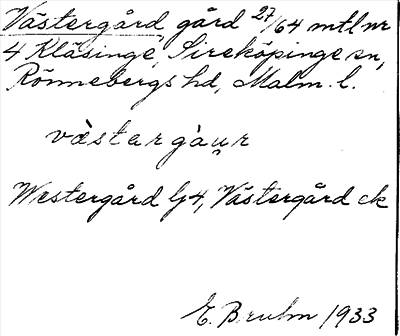 Västergård, gård 27/64 mtl nr
4 Kläsinge, Sireköpinge sn,
Rönnebergs hd, Malm. l.
västergåu̯r
Westergård G4, Västergård ek
E. Bruhn 1933